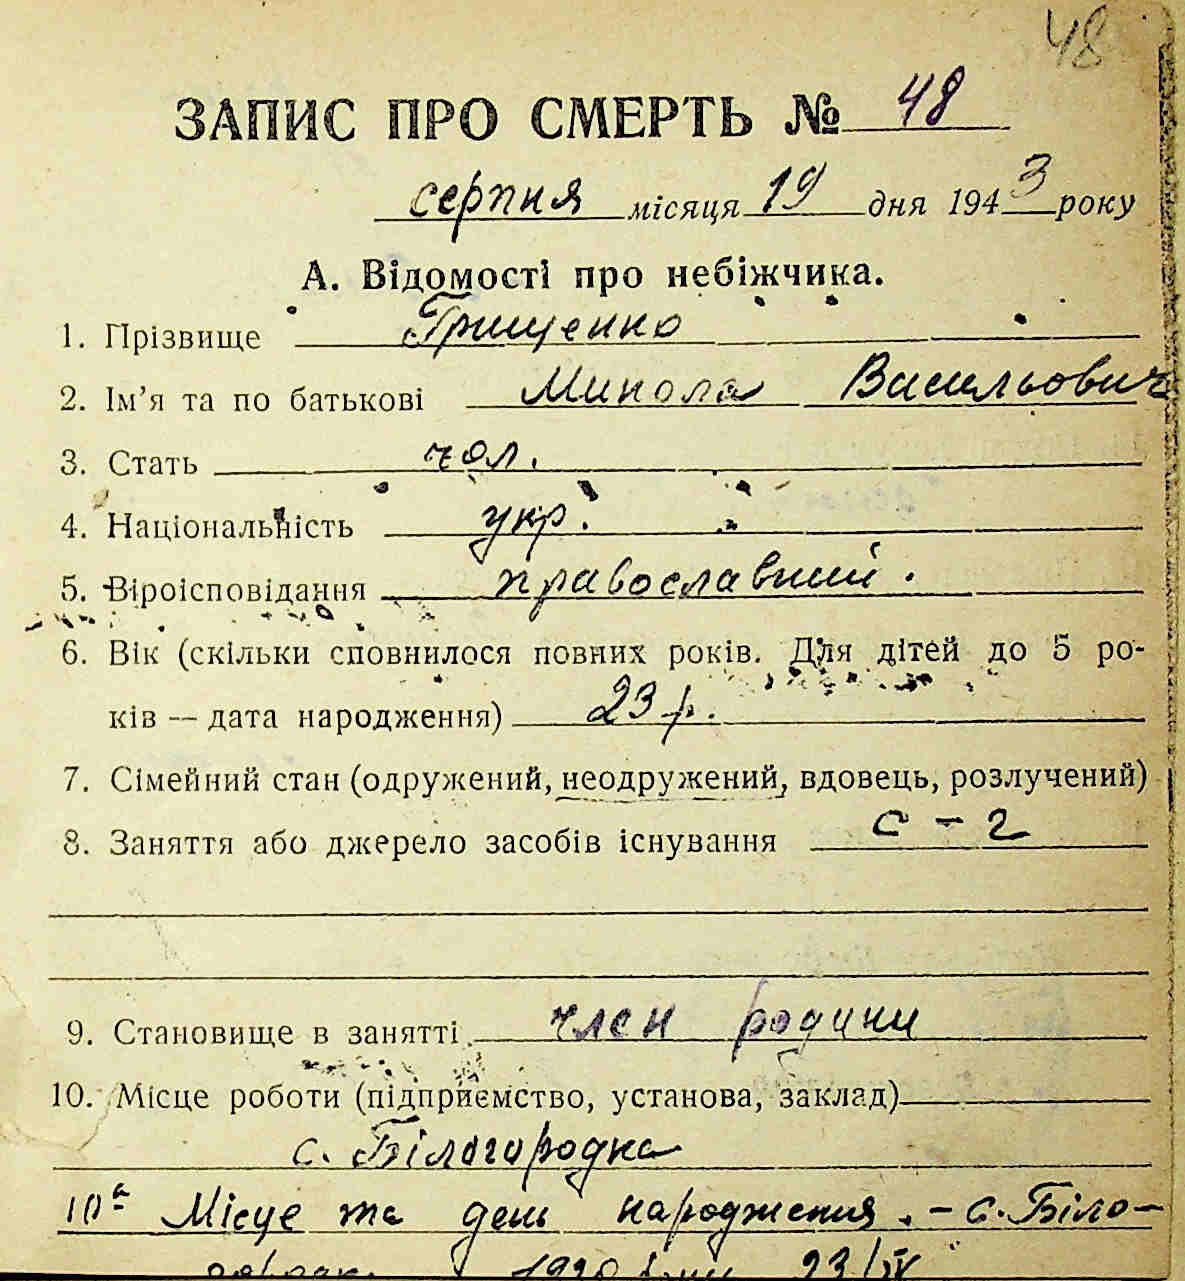 48
ЗАПИС ПРО СМЕРТЬ № 48
серпня місяця 19 дня 1943 року
А. Відомості про небіжчика.
1. Прізвище Грищенко
2. Ім'я та по батькові Микола Васильович
3. Стать чол.
4. Національність укр.
5. Віроісповідання православний.
6. Вік (скільки сповнилося повних років. Для дітей до 5 ро-
ків — дата народження) 23 р.
7. Сімейний стан (одружений, неодружений, вдовець, розлучений)
8. Заняття або джерело засобів існування с-г
9. Становище в занятті член родини
10. Місце роботи (підприємство, установа, заклад)
с. Білогородка
10а Місце та день народження. - с. Біло-
1920 23/IV